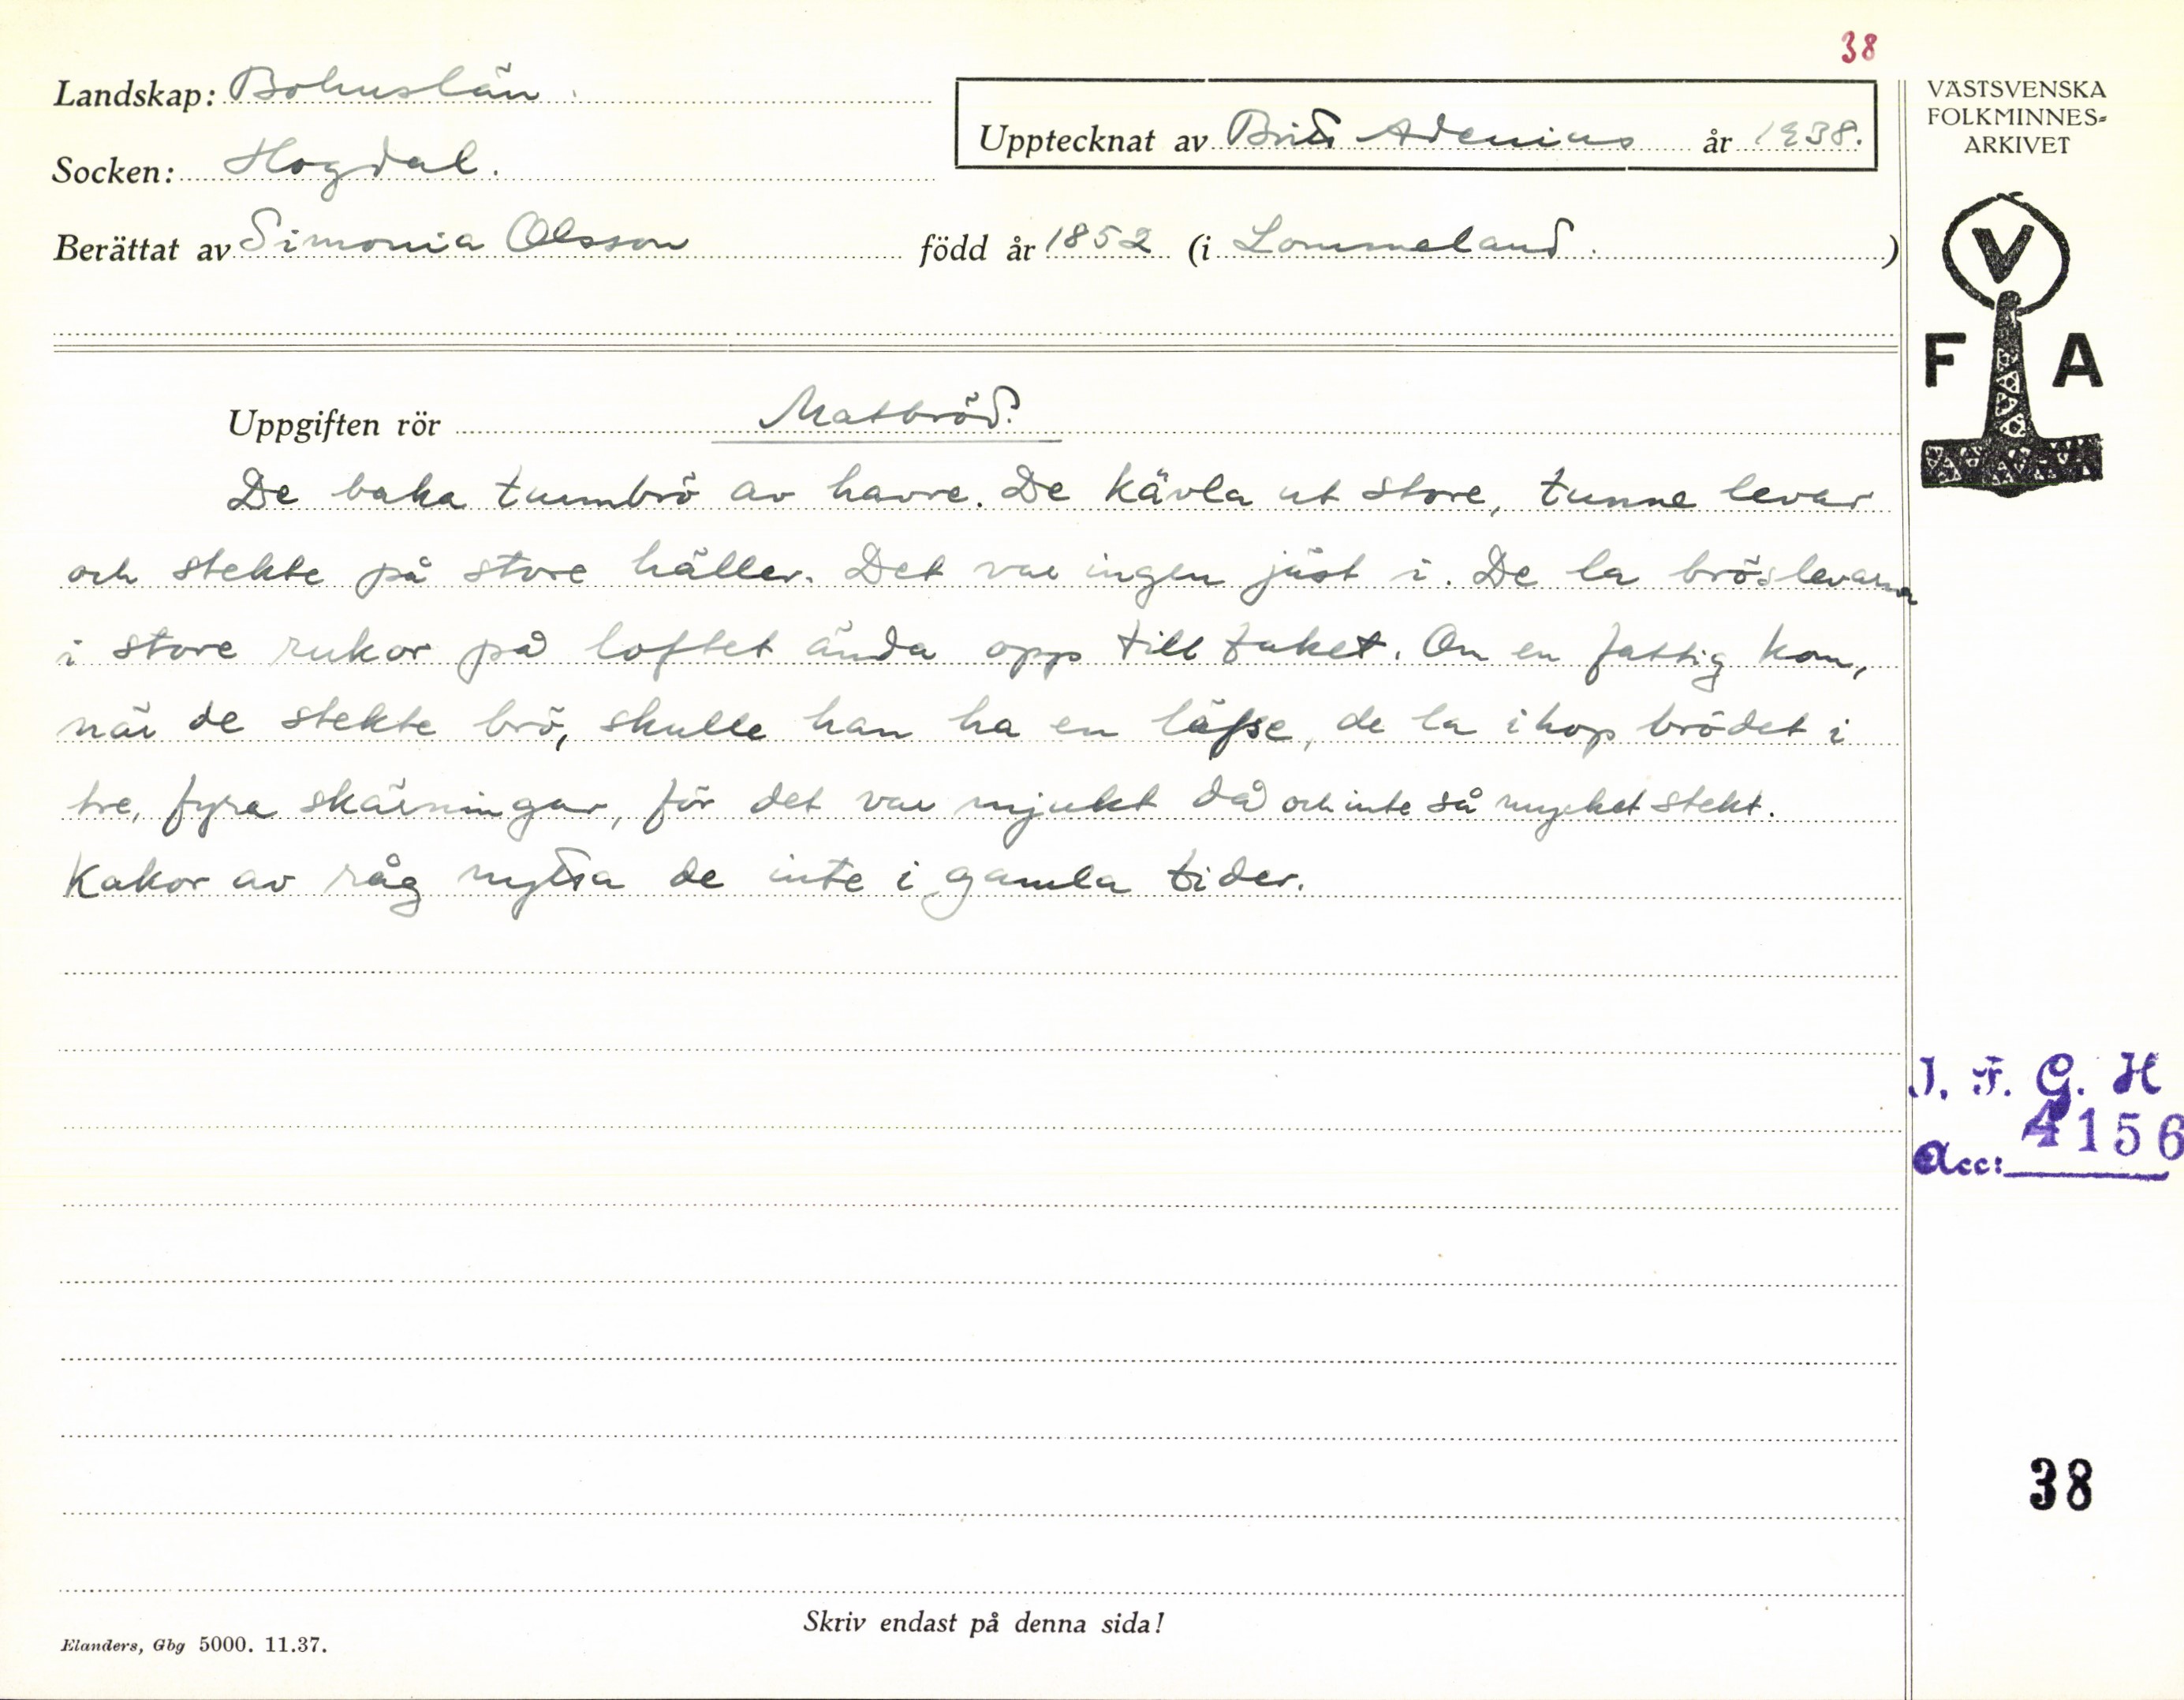 38
Landskap: Bohuslän.
Upptecknat av Britt Adenius år 1938.
Socken: Hogdal.
Berättat av Simonia Olsson född år 1852 (i Lommeland.)
VÄSTSVENSKA
FOLKMINNES-
ARKIVET
V
F A
Uppgiften rör Matbröd.
De baka tunnbrö av havre. De kävla ut store, tunne levar
och stekte på store häller. Det var ingen jäst i. De la bröslevarna
i store rukor på loftet ända opp till taket. Om en fattig kom,
när de stekte brö, skulle han ha en läfse, de la ihop brödet i
tre, fyra skärningar, för det var mjukt då och inte så mycket stekt.
Kakor av råg nytta de inte i gamla tider.
I. F. G. H
4156
Acc:
38
Skriv endast på denna sida!
Elanders, Gbg 5000. 11.37.